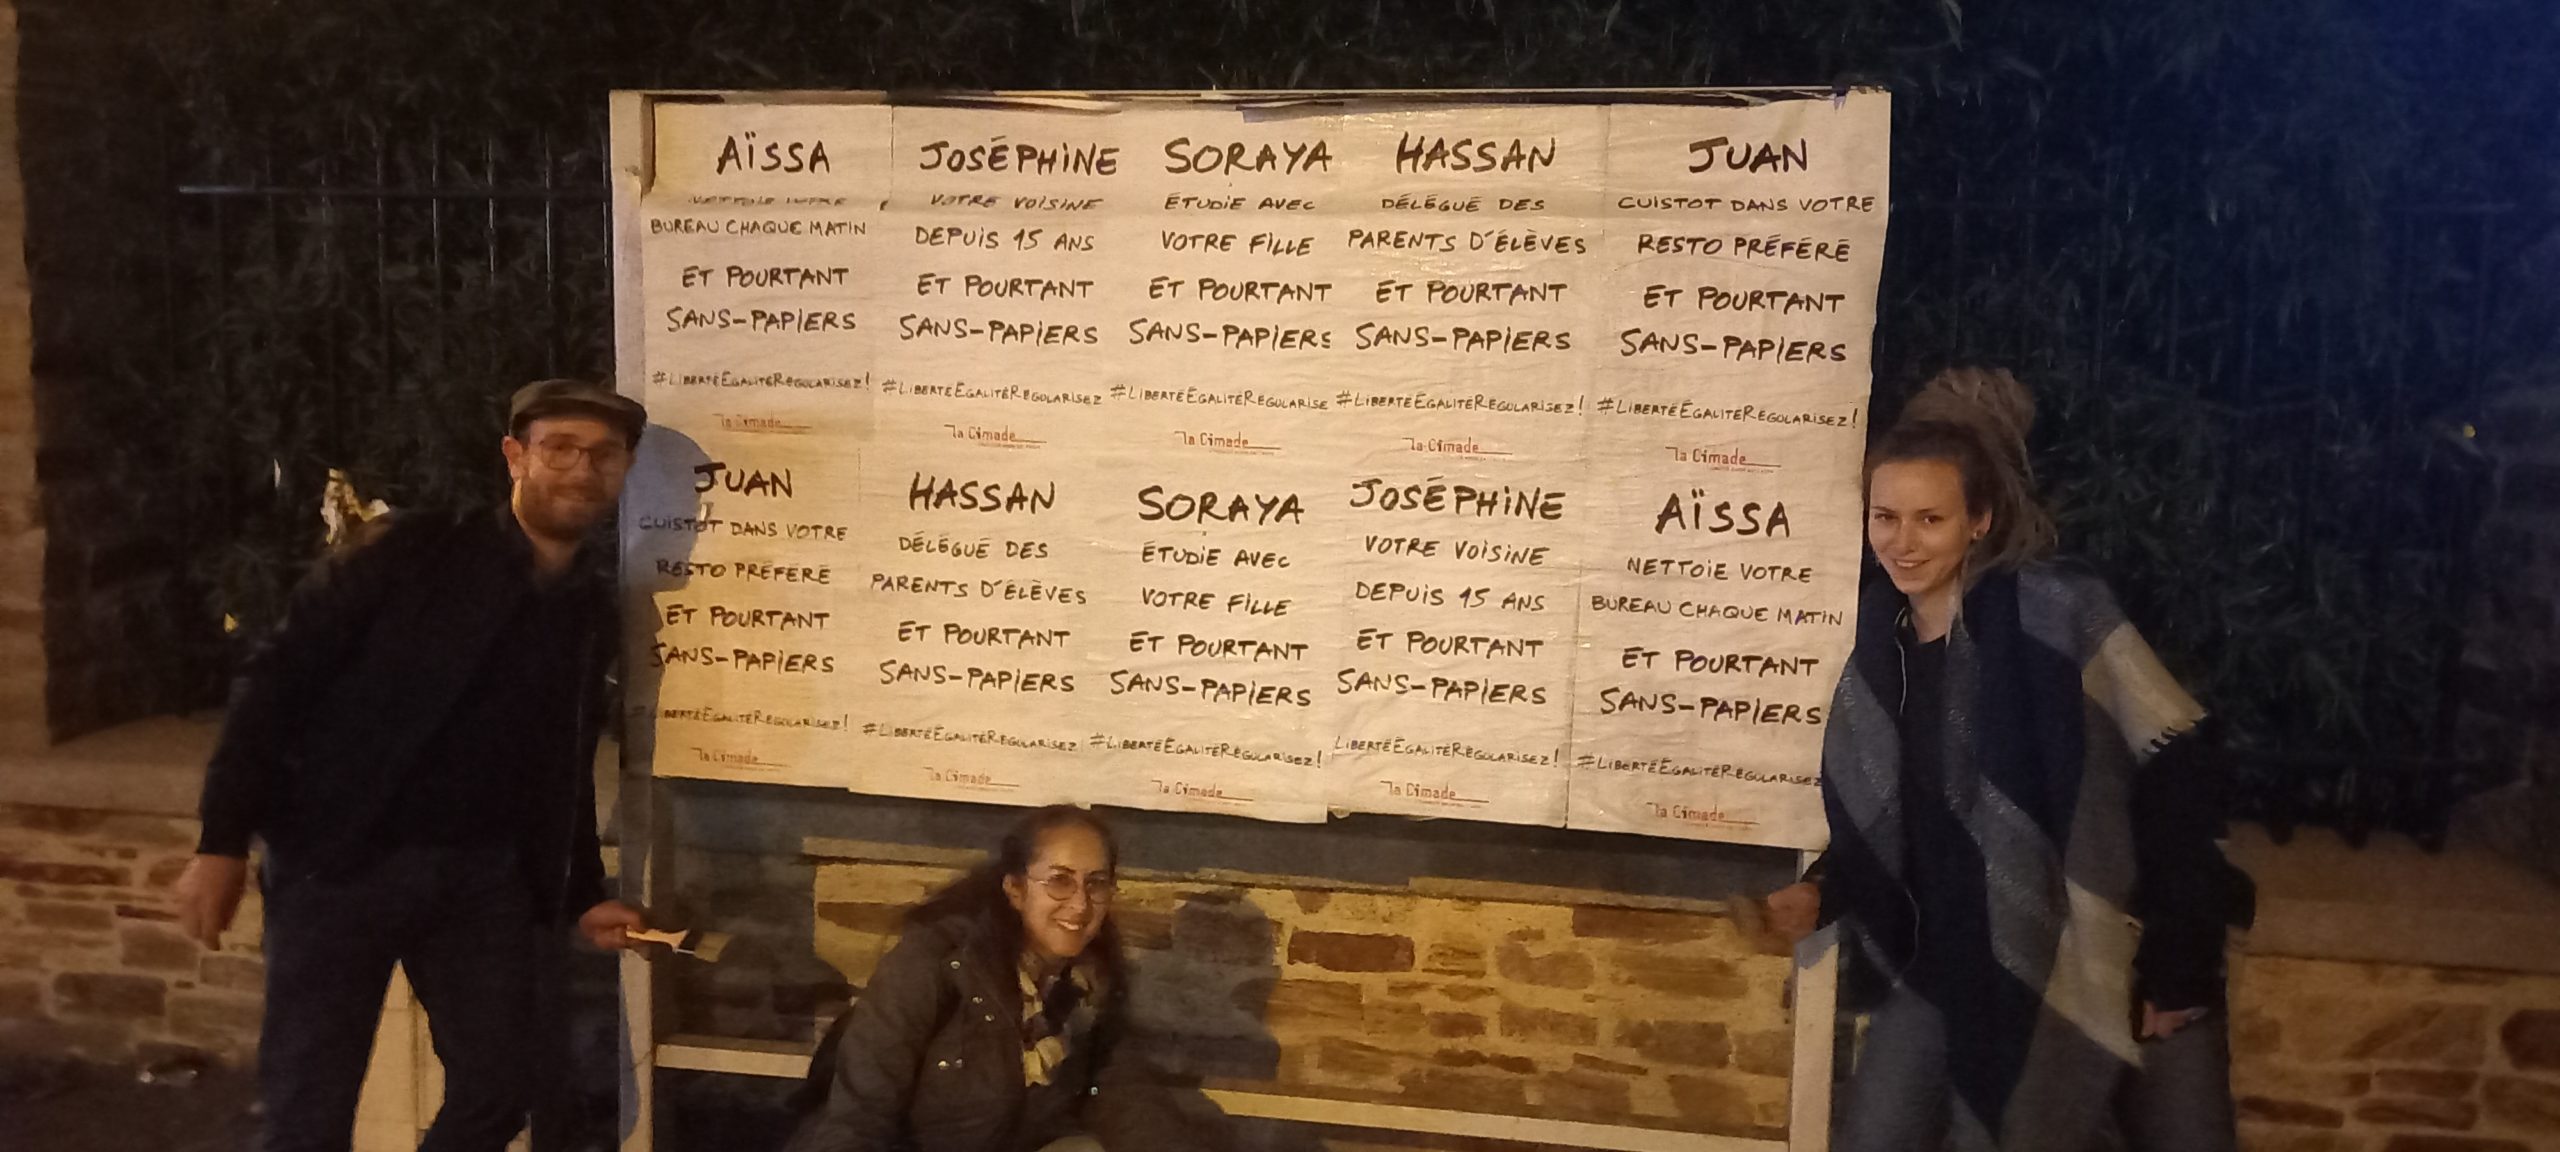 AÏSSA
NETTOIE VOTRE
BUREAU CHAQUE MATIN
ET POURTANT
SANS-PAPIERS
#LIBERTÉÉGALITÉRÉGULARISEZ!
la Cimade
JOSÉPHINE
VOTRE VOISINE
DEPUIS 15 ANS
ET POURTANT
SANS-PAPIERS
#LIBERTÉÉGALITÉRÉGULARISEZ
la Cimade
SORAYA
ÉTUDIE AVEC
VOTRE FILLE
ET POURTANT
SANS-PAPIERS
#LIBERTÉÉGALITÉRÉGULARISE
la Cimade
HASSAN
DÉLÉGUÉ DES
PARENTS D'ÉLÈVES
ET POURTANT
SANS-PAPIERS
#LIBERTÉÉGALITÉRÉGULARISEZ!
la Cimade
JUAN
CUISTOT DANS VOTRE
RESTO PRÉFÉRÉ
ET POURTANT
SANS-PAPIERS
#LIBERTÉÉGALITÉRÉGULARISEZ!
la Cimade
JUAN
CUISTOT DANS VOTRE
RESTO PRÉFÉRÉ
ET POURTANT
SANS-PAPIERS
#LIBERTÉÉGALITÉRÉGULARISEZ!
la Cimade
HASSAN
DÉLÉGUÉ DES
PARENTS D'ÉLÈVES
ET POURTANT
SANS-PAPIERS
#LIBERTÉÉGALITÉRÉGULARISEZ
la Cimade
SORAYA
ÉTUDIE AVEC
VOTRE FILLE
ET POURTANT
SANS-PAPIERS
#LIBERTÉÉGALITÉRÉGULARISEZ!
la Cimade
JOSÉPHINE
VOTRE VOISINE
DEPUIS 15 ANS
ET POURTANT
SANS-PAPIERS
LIBERTÉÉGALITÉRÉGULARISEZ!
la Cimade
AÏSSA
NETTOIE VOTRE
BUREAU CHAQUE MATIN
ET POURTANT
SANS-PAPIERS
#LIBERTÉÉGALITÉRÉGULARISEZ
la Cimade